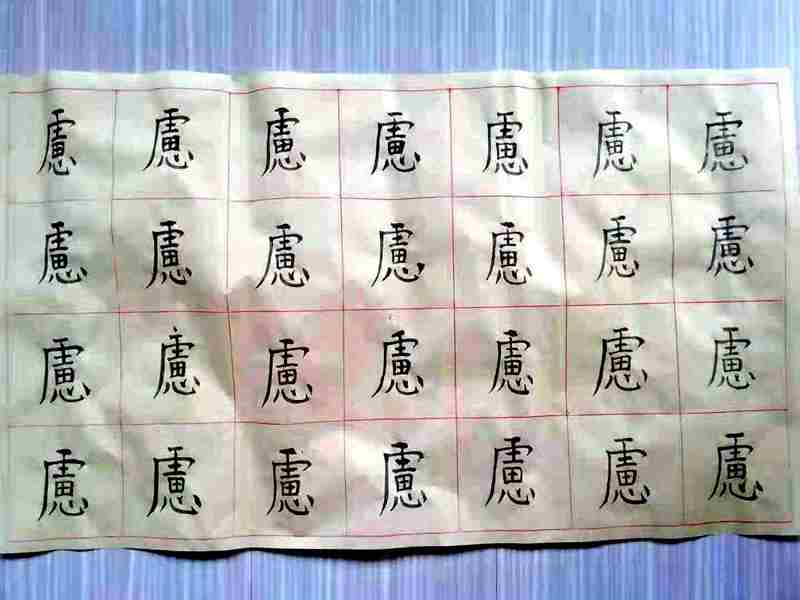 慮慮慮慮慮慮慮
慮慮慮慮慮慮慮
慮慮慮慮慮慮慮
慮慮慮慮慮慮慮